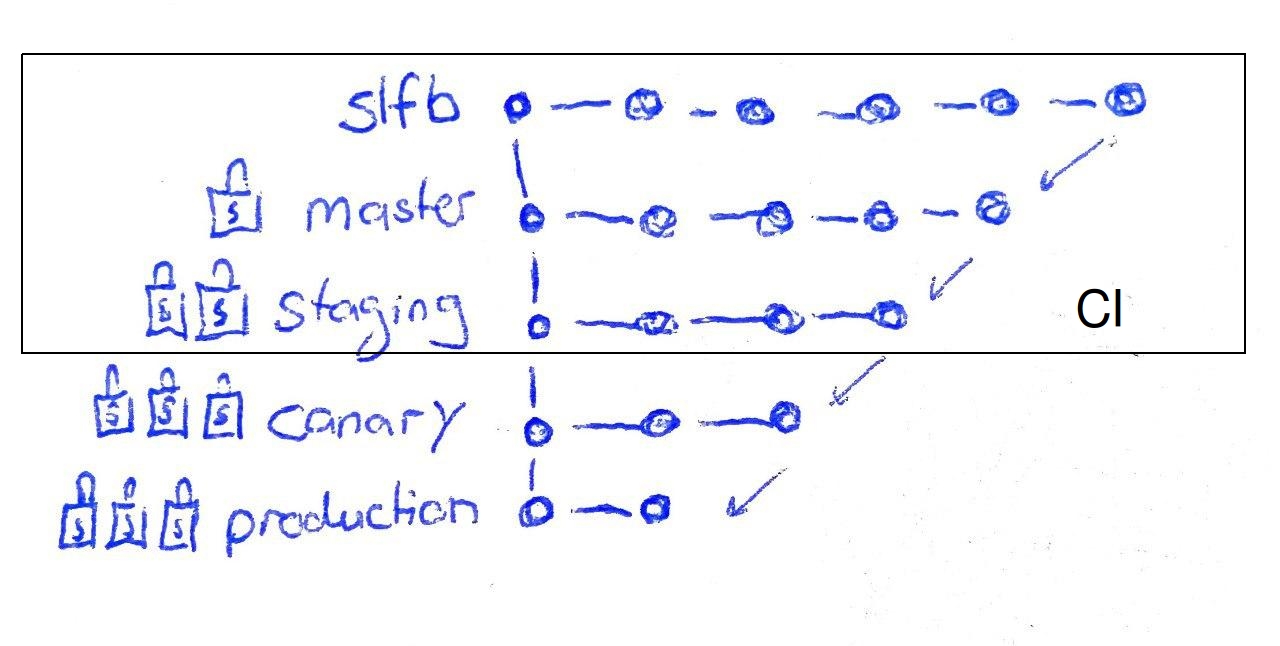 slfb
S master
S S staging
CI
S S S canary
S S S production